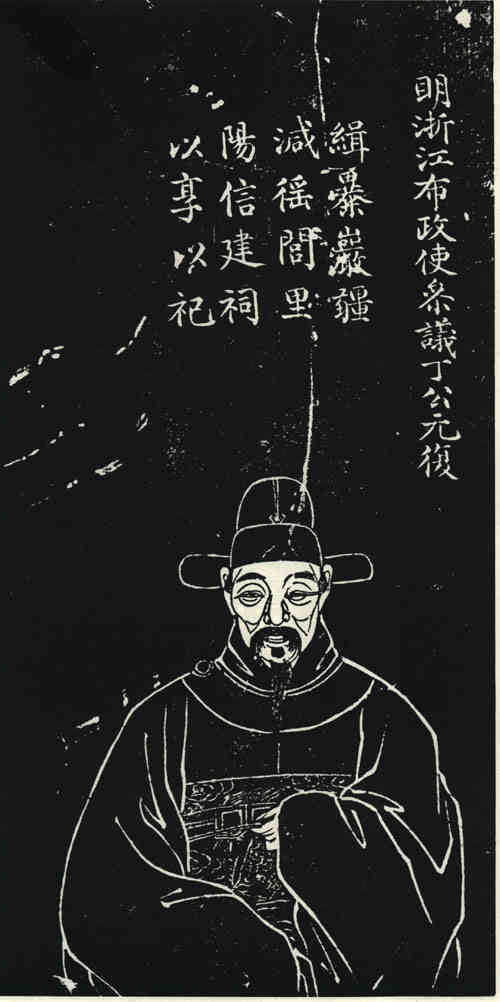 眀浙江布政使叅議丁公元復
緝暴巖疆
減徭閭里
陽信建祠
以享以祀